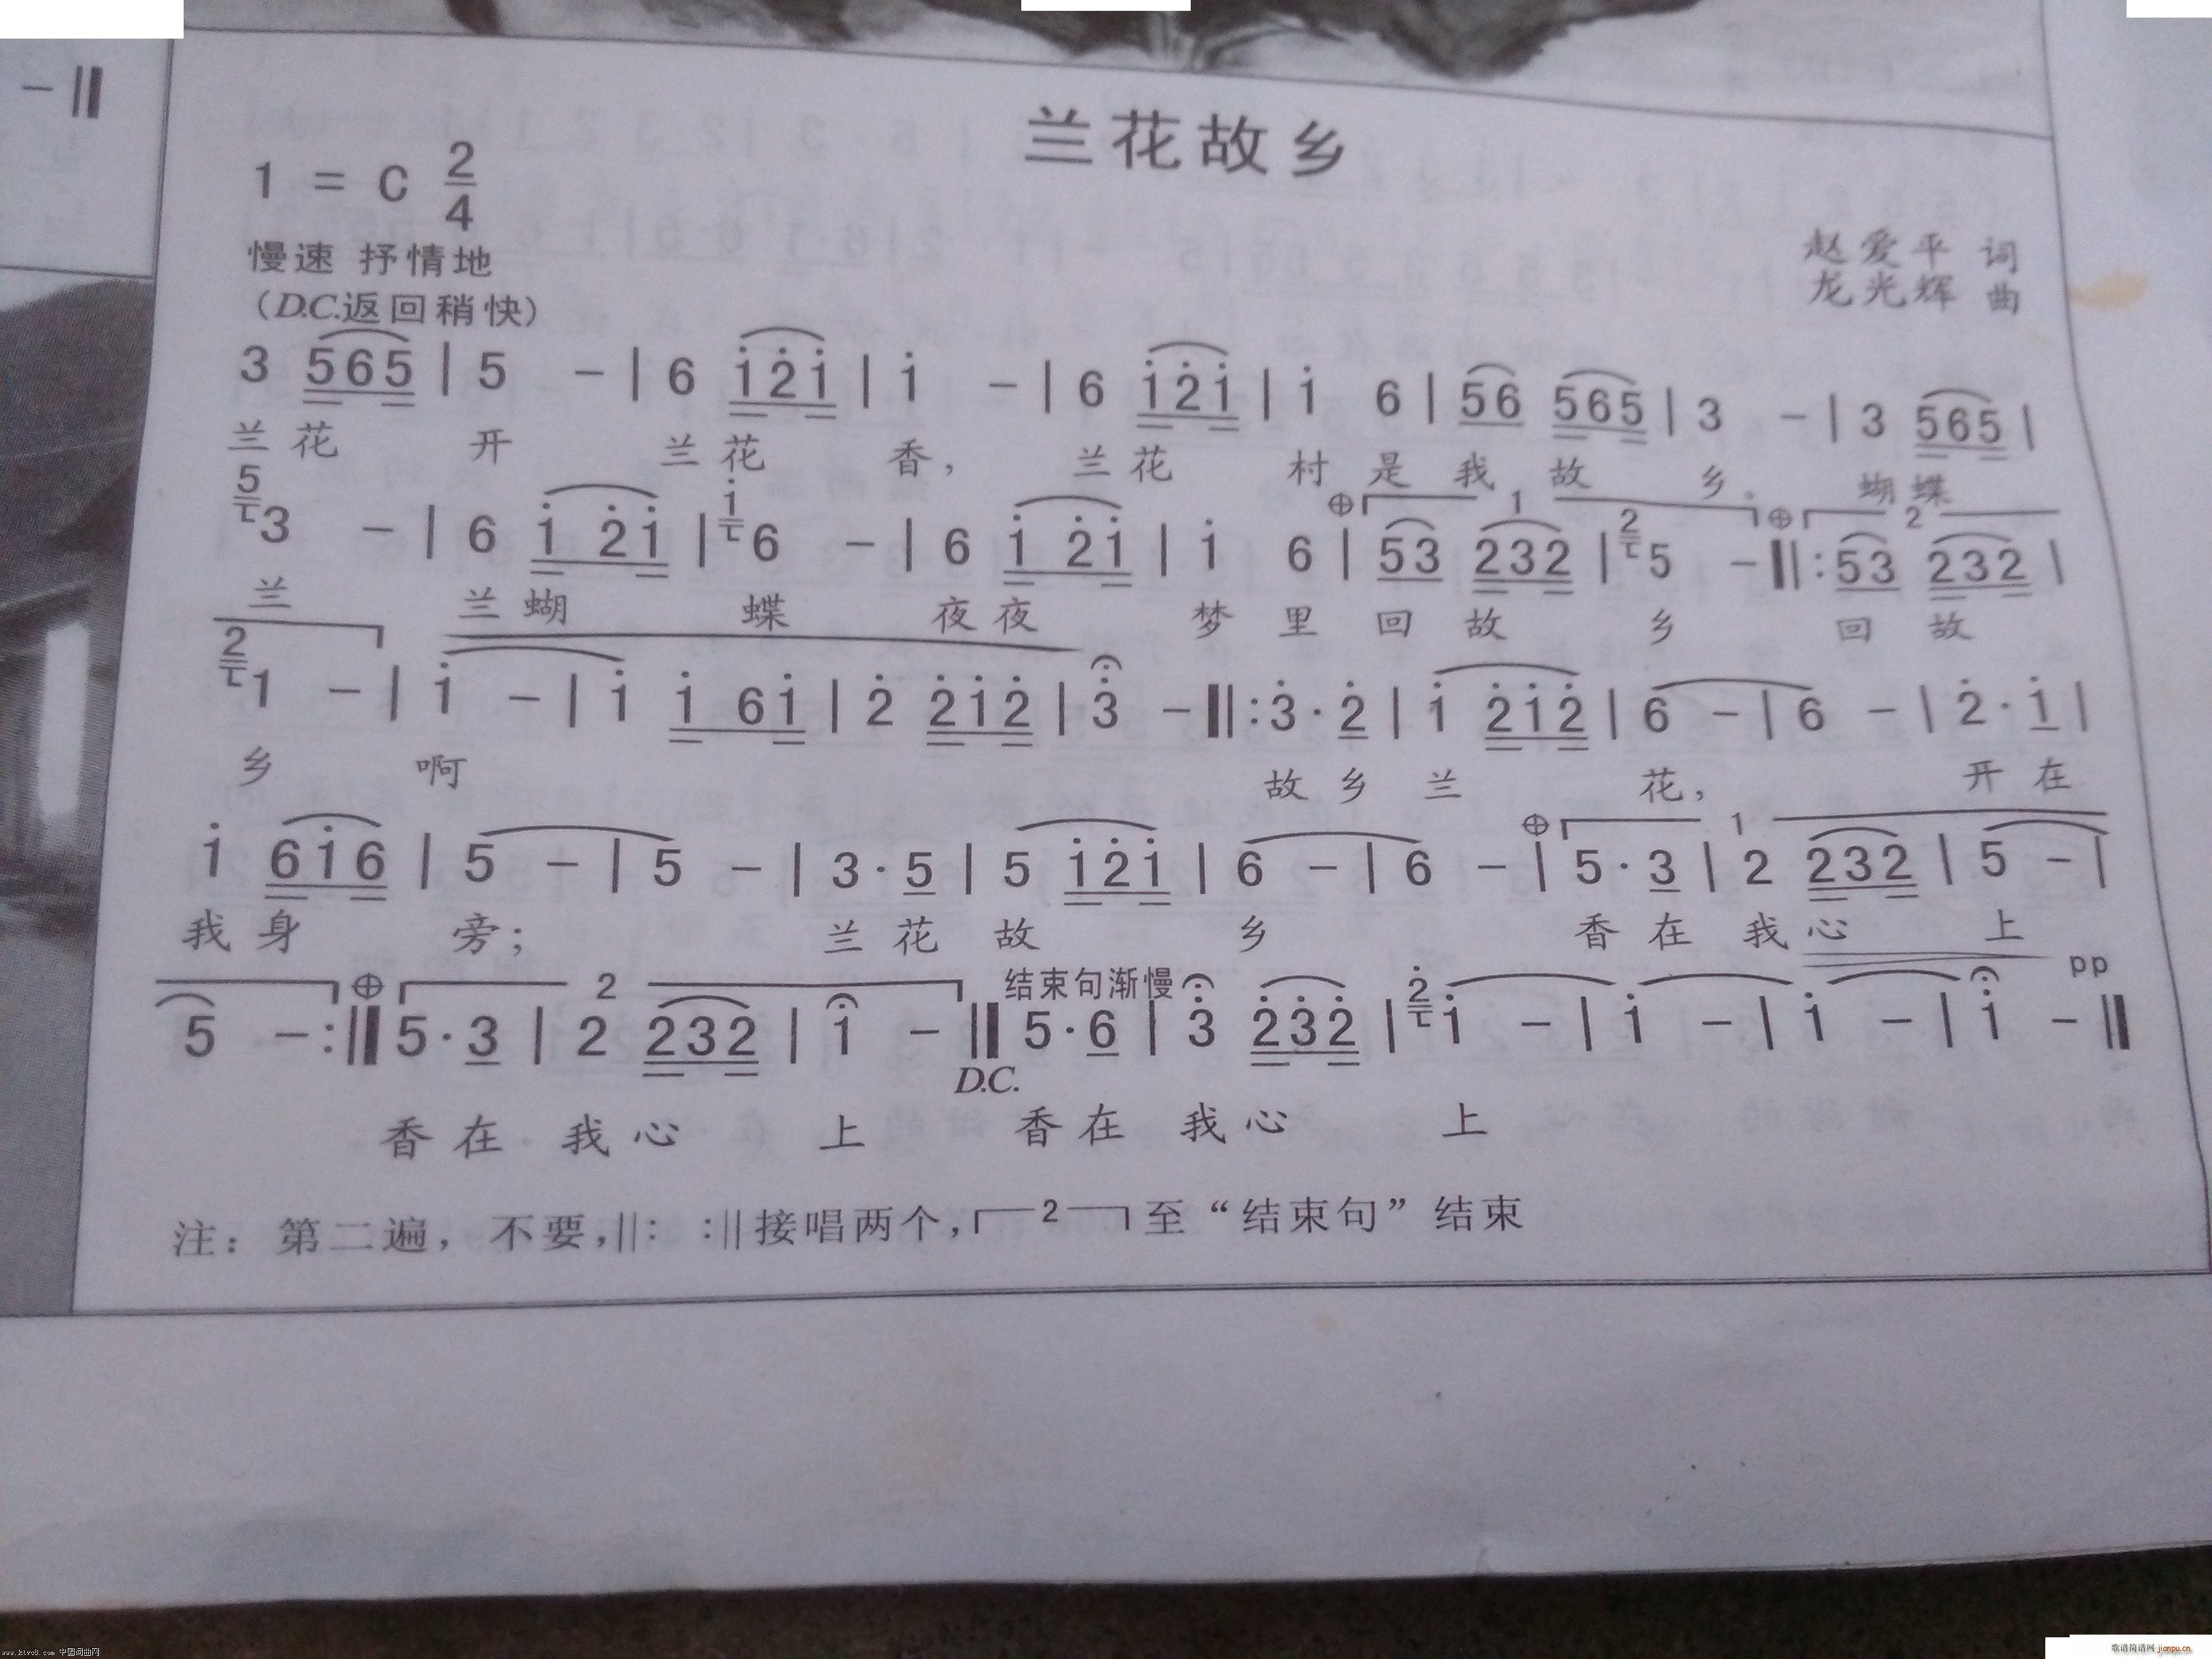 兰花故乡
1 = C 2/4
慢速 抒情地
(D.C.返回稍快)
赵爱平 词
龙光辉 曲
3 565 | 5 - | 6 i̇2̇i̇ | i̇ - | 6 i̇2̇i̇ | i̇ 6 | 56 565 | 3 - | 3 565 |
兰花 开 兰花 香, 兰花 村 是 我 故 乡。 蝴蝶
⁵3 - | 6 i̇ 2̇i̇ | ⁱ6 - | 6 i̇ 2̇i̇ | i̇ 6 ⊕ | 1 53 232 | ²5 - ⊕ ‖: 2 53 232 |
兰 兰蝴 蝶 夜夜 梦 里 回 故 乡 回 故
²1 - | i̇ - | i̇ i̇ 6i̇ | 2̇ 2̇i̇2̇ | 3̇ - ‖: 3̇·2̇ | i̇ 2̇i̇2̇ | 6 - | 6 - | 2̇·i̇ |
乡 啊 故乡 兰 花, 开在
i̇ 6i̇6 | 5 - | 5 - | 3·5 | 5 i̇2̇i̇ | 6 - | 6 - ⊕ | 1 5·3 | 2 232 | 5 - |
我身 旁; 兰花 故 乡 香在 我心 上
结束句渐慢 pp
5 - :‖ ⊕ 2 5·3 | 2 232 | i̇ - ‖ 5·6 | 3̇ 2̇3̇2̇ | ²i̇ - | i̇ - | i̇ - | i̇ - ‖
D.C.
香在 我心 上 香在 我心 上
注: 第二遍, 不要,‖: :‖接唱两个,┌─2─┐至“结束句”结束
www.ktvc8.com 中国词曲网
歌谱简谱网 jianpu.cn